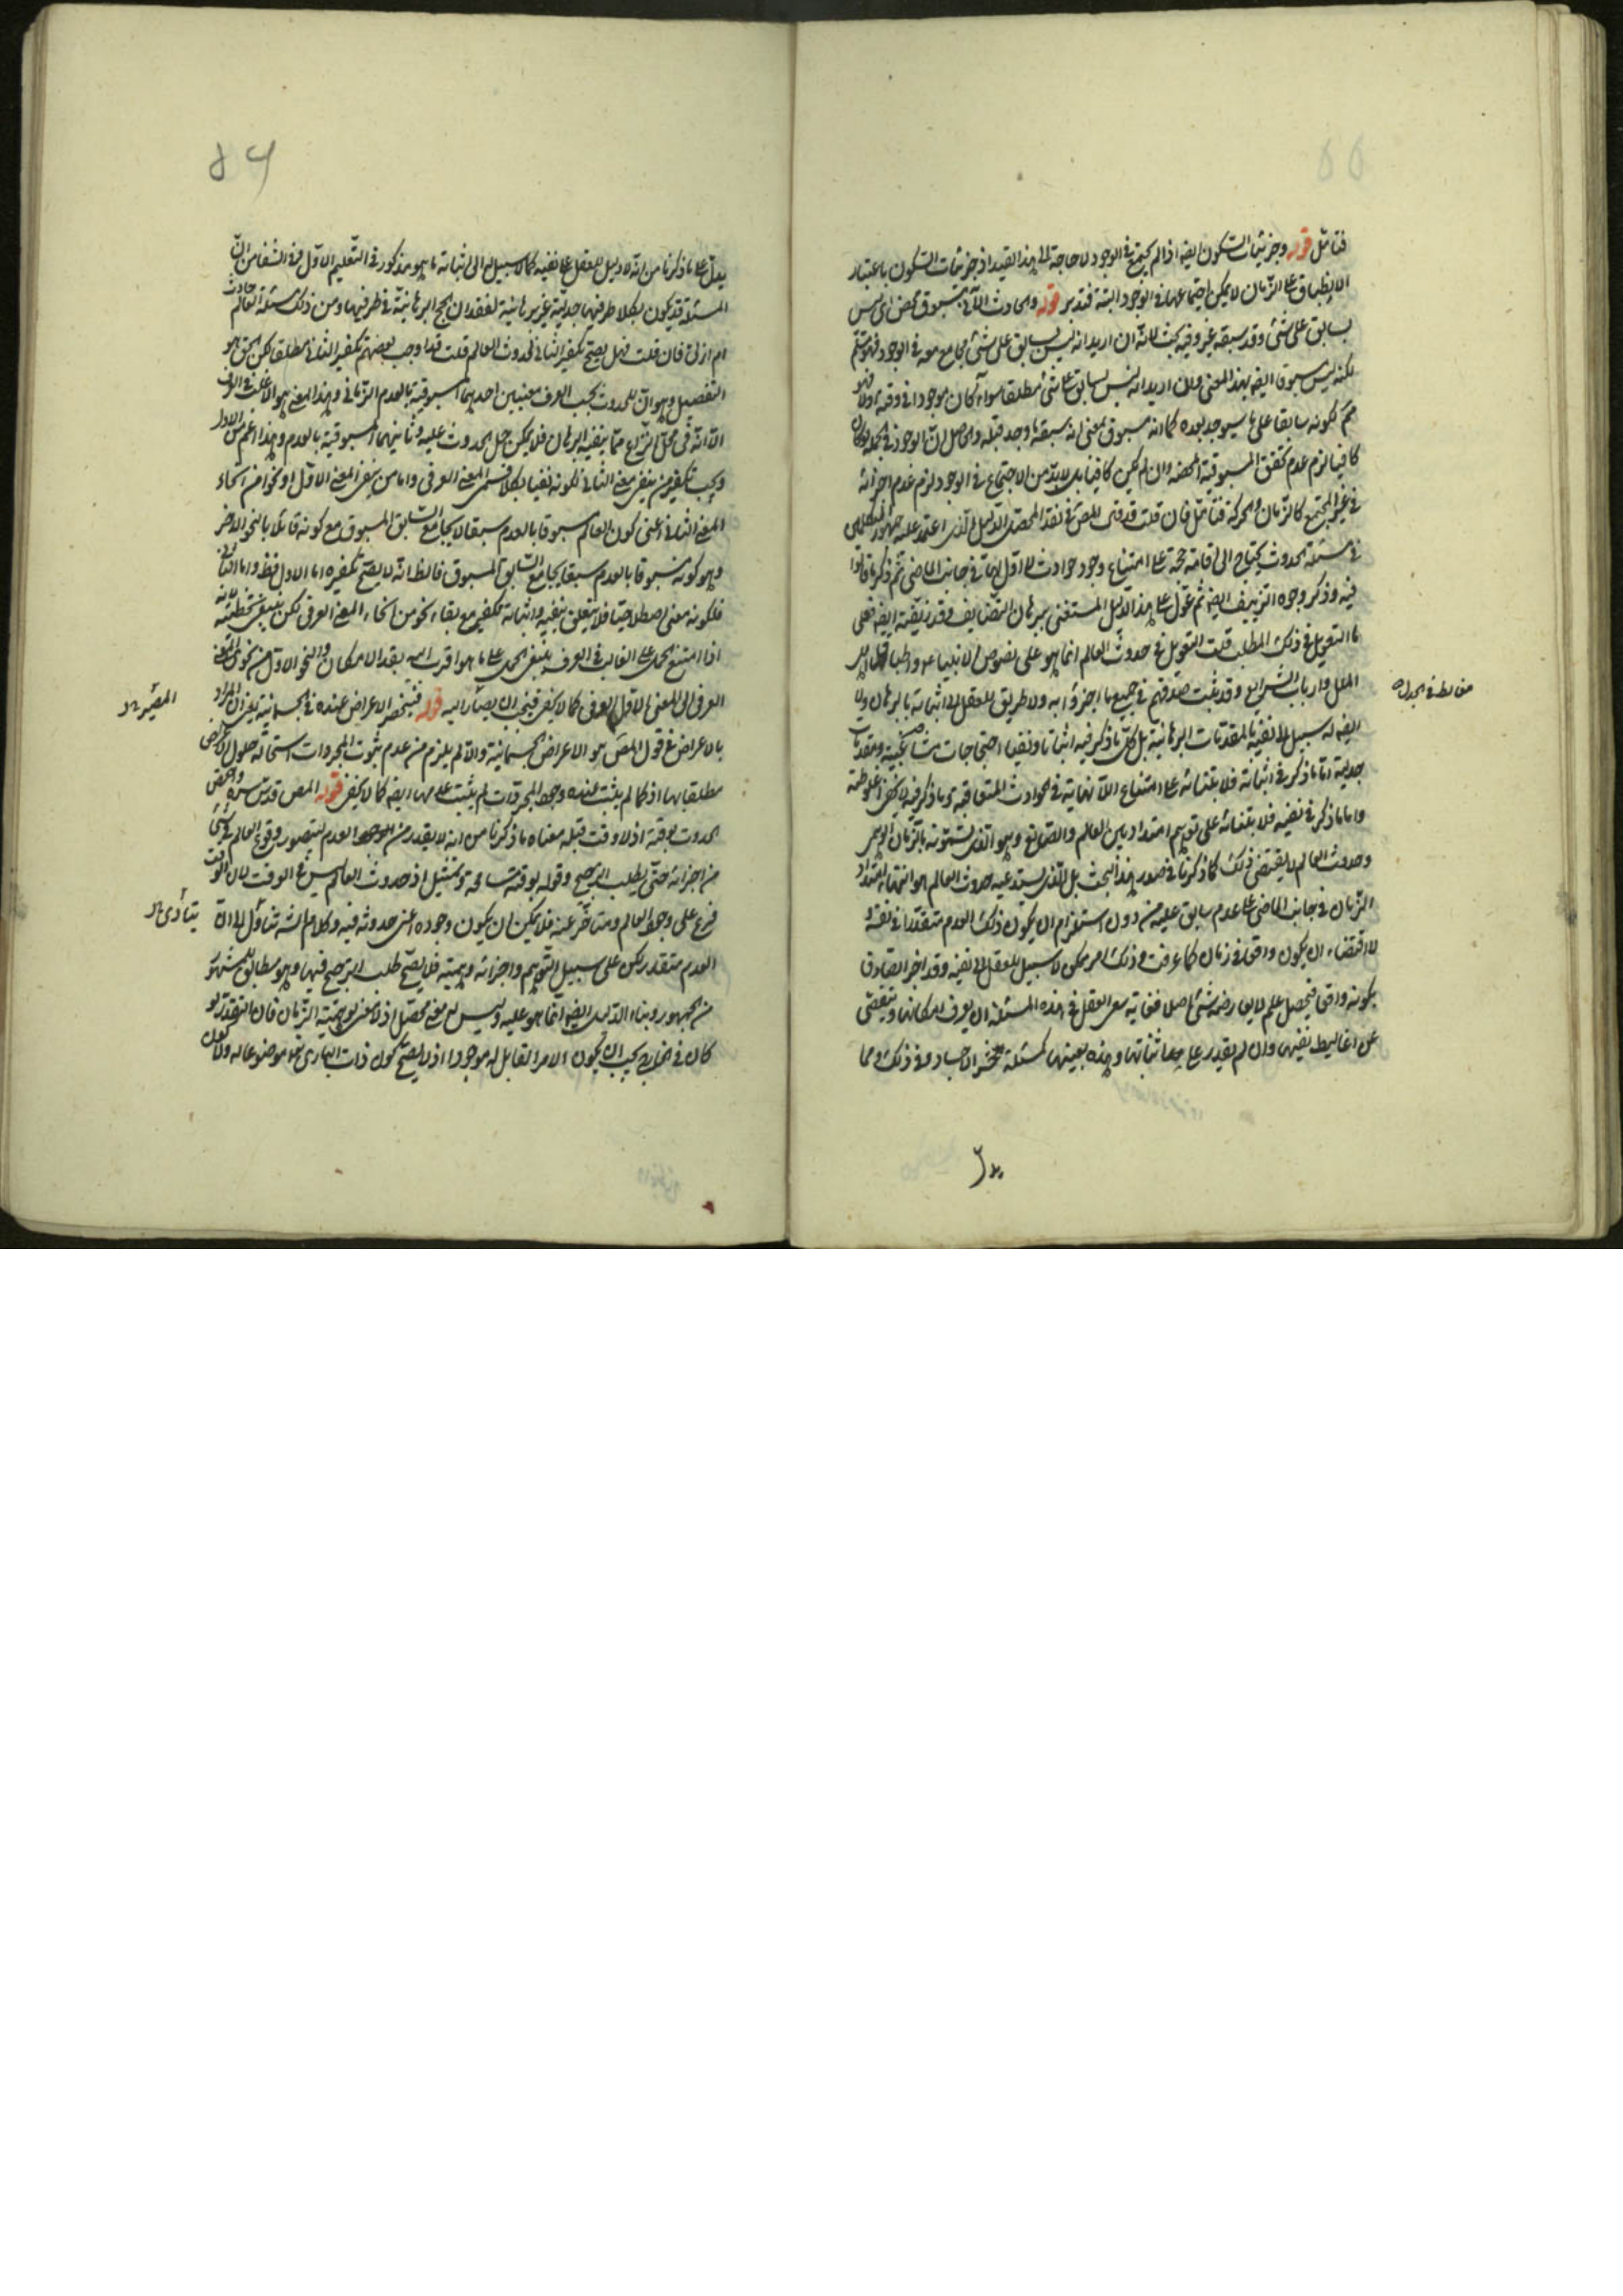 فتأمل قوله وجزئيات السكون ايضه اذ الم يجتمع في الوجود لا حاجة الى هذا القيد اذ جزئيات السكون باعتبار
الانطباق على الزمان لا يمكن اجتماعها في الوجود البتة فتدبر قوله والحادث الآني مسبوق محض اى ليس
بسابق على شئ وقد سبقه غيره وفيه بحث لانه ان اريد انه ليس بسابق على شئ مجامع معه في الوجود فهو مسلم
لكنه ليس مسبوقا ايضه بهذا المعنى وان اريد انه ليس بسابق على شئ مطلقا سواء كان موجودا في وقته او لا فهو
مم لكونه سابقا على ما سيوجد بعده كما انه مسبوق بمعنى انه سبقه ما وجد قبله والحاصل ان الوجود في الجملة ان كان
كافيا لزم عدم تحقق المسبوقية المحضة وان لم يكن كافيا بل لا بد من الاجتماع في الوجود لزم عدم اجزائه
في غير المجتمع كالزمان والحركة فتأمل فان قلت قد في المص في نقد المحصل الدليل الذى اعتمد عليه جمهور المتكلمين
في مسئلة الحدوث يحتاج الى اقامة حجة على امتناع وجود حوادث لا اول لها في جانب الماضى ثم ذكر ما قالوا
فيه وذكر وجوه التزييف ايضه ثم عول على هذا الدليل المستغنى ببرهان التضايف وقد زيفته ايضه فعلى
ما التعويل في ذلك المطلب قلت التعويل في حدوث العالم انما هو على نصوص الانبياء عم واطباق اهل
الملل وارباب الشرايع وقد ثبت صدقهم في جميع ما اخبروا به ولا طريق للعقل الى اثباته بالبرهان ولا
ايضه له سبيل الى نفيه بالمقدمات البرهانية بل كل ما ذكر فيه اثباتا ونفيا احتجاجات مشاغبية ومقدمات
جدلية اما ما ذكر في اثباته فلابتنائه على امتناع اللانهاية في الحوادث المتعاقبة وما ذكر فيه لا يخفى اغلوطته
واما ما ذكر في نفيه فلابتنائه على توهم امتداد بين العالم والصانع وهو الذى يسمونه بالزمان الوهمى
وحدوث العالم لا يقتضى ذلك كما ذكرنا في صدور هذا البحث بل الذى يستدعيه حدوث العالم هو انتهاء امتداد
الزمان في جانب الماضى على عدم سابق عليه من دون استلزام ان يكون ذلك العدم متقدرا في نفسه و
لا اقتضاء ان يكون واقعا في زمان كما عرفت وذلك امر ممكن لا سبيل للعقل الى نفيه وقد اخبر الصادق
بكونه واقعا فيحصل علم لا يعارضه شئ اصلا فغاية سعى العقل في هذه المسئلة ان يعرف امكانها ويتفصى
عن اغاليط نفيها وان لم يقدر على اثباتها وهذه بعينها كمسئلة حشر الاجساد وفي ذلك ومما
مغالط في الجدل
يدل
٥٦
يدل على ما ذكرنا من انه لا دليل للعقل على نفيه كما لا سبيل له الى اثباته ما هو مذكور في التعليم الاول من الشفا من ان
المسئلة قد يكون بكلا طرفيها جدلية غير برهانية لفقدان الحجج البرهانية في طرفيها ومن ذلك مسئلة العالم حادث
ام ازلى فان قلت فهل يصح تكفير النافى لحدوث العالم قلت قد اوجب بعضهم تكفير النافى مطلقا لكن الحق هو
التفصيل وهو ان للحدوث بحسب العرف معنيين احدهما المسبوقية بالعدم الزمانى وهذا المعنى هو الاغلب في العرف
الا انه في محل النزاع مما ينفيه البرهان فلا يمكن حمل الحدوث عليه وثانيهما المسبوقية بالعدم وهذا اعم من الاول
ويجب تكفير من ينفى معنى الثانى لكونه نفيا لكلا قسمى المعنى العرفى واما من ينفى المعنى الاول او نحوا من انحاء
المعنى الثانى اعنى كون العالم مسبوقا بالعدم سبقا لا يجامع السابق المسبوق مع كونه قائلا بالنحو الاخر
وهو كونه مسبوقا بالعدم سبقا يجامع السابق المسبوق فالظ انه لا يصح تكفيره اما الاول فظ واما الثانى
فلكونه معنى اصطلاحيا فلا يتعلق بنفيه واثباته تكفير مع بقاء نحو من انحاء المعنى العرفى لكن ينبغى تخطئته لانه
اذا امتنع الحمل على الغالب في العرف ينبغى الحمل على ما هو اقرب اليه بقدر الامكان والنحو الاول من نحوى المعنى
العرفى الى المعنى الاول العرفى كما لا يخفى فيجب ان يصار اليه قوله فينحصر الاعراض عنده في الجسمانية يعنى ان المراد
بالاعراض في قول المص هو الاعراض الجسمانية والا لم يلزم من عدم ثبوت المجردات استحالة حلول الاعراض
مطلقا بها اذ كما لم يثبت عنده وجود المجردات لم يثبت عدمها ايضه كما لا يخفى قوله المص قدس سره واختص
الحدوث بوقته اذ لا وقت قبله معناه ما ذكرنا من انه لا يقدر من الموجود العدم ليتصور وقوع العالم في شئ
من اجزائه حتى يطلب الترجيح وقوله بوقته مسامحة وتمثيل اذ حدوث العالم ليس في الوقت لان الوقت
فرع على وجود العالم ومتأخر عنه فلا يمكن ان يكون وجوده اعنى حدوثه فيه وكلام الشه تنأول الى ان
العدم متقدر لكن على سبيل التوهم واجزائه وهمية فلا يصح طلب الترجيح فيها وهو مطابق للمشهور
من الجمهور وبناء الدليل ايضا انما هو عليه وليس له معنى محصل اذ لا معنى لوهمية الزمان فان التقدر لو
كان في الخارج يجب ان يكون الامر القابل له موجودا اذ لا يصح كون ذات البارى تعم موضوعا له ولا كون
المصير
يتأدى